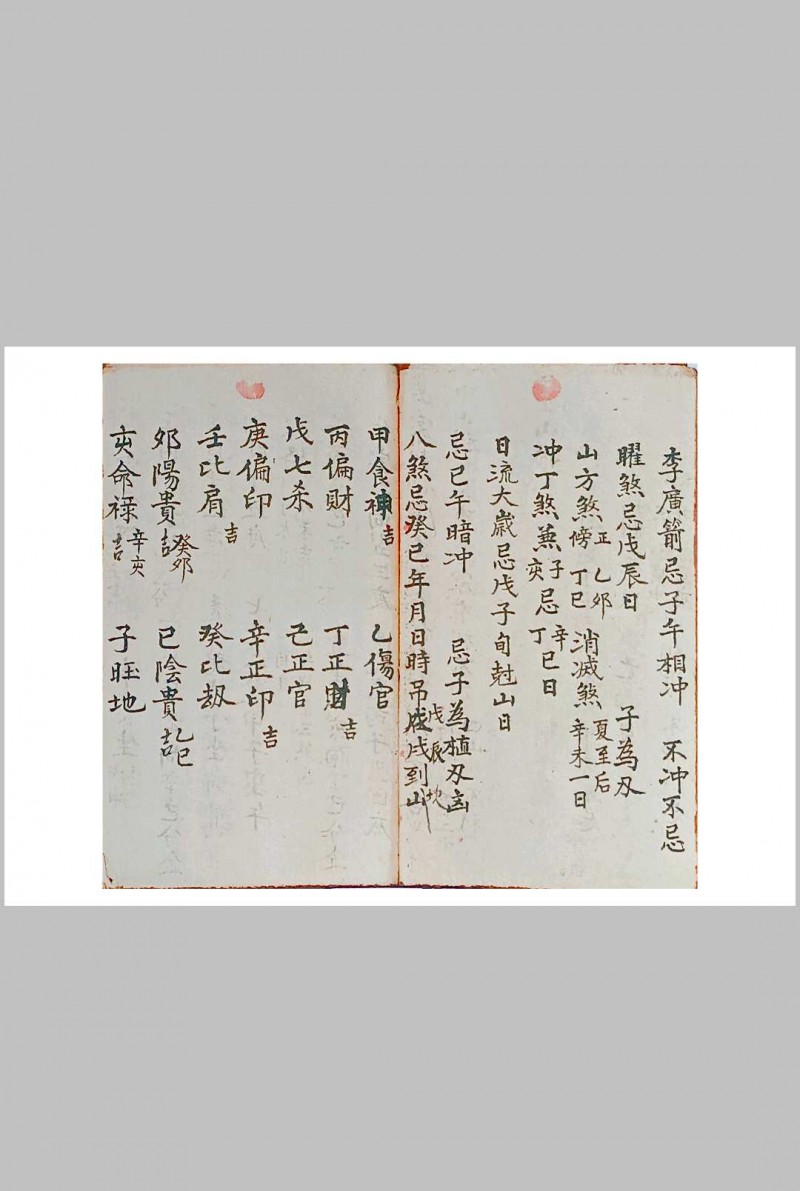 李廣箭忌子午相冲　不冲不忌
曜煞忌戊辰日　子為刄
山方煞正乙夘傍丁巳　消滅煞夏至后辛未一日
冲丁煞兼子亥忌辛丁巳日
日流大歲忌戊子旬尅山日
忌巳午暗冲　忌子為植刄凶
八煞忌癸巳年月日時吊戌到山
戊辰
甲食神吉　乙傷官
丙偏財　丁正財吉
戊七杀　己正官
庚偏印吉　辛正印吉
壬比肩　癸比劫
夘陽貴吉癸夘　巳陰貴吉乙巳
亥命禄吉辛亥　子旺地